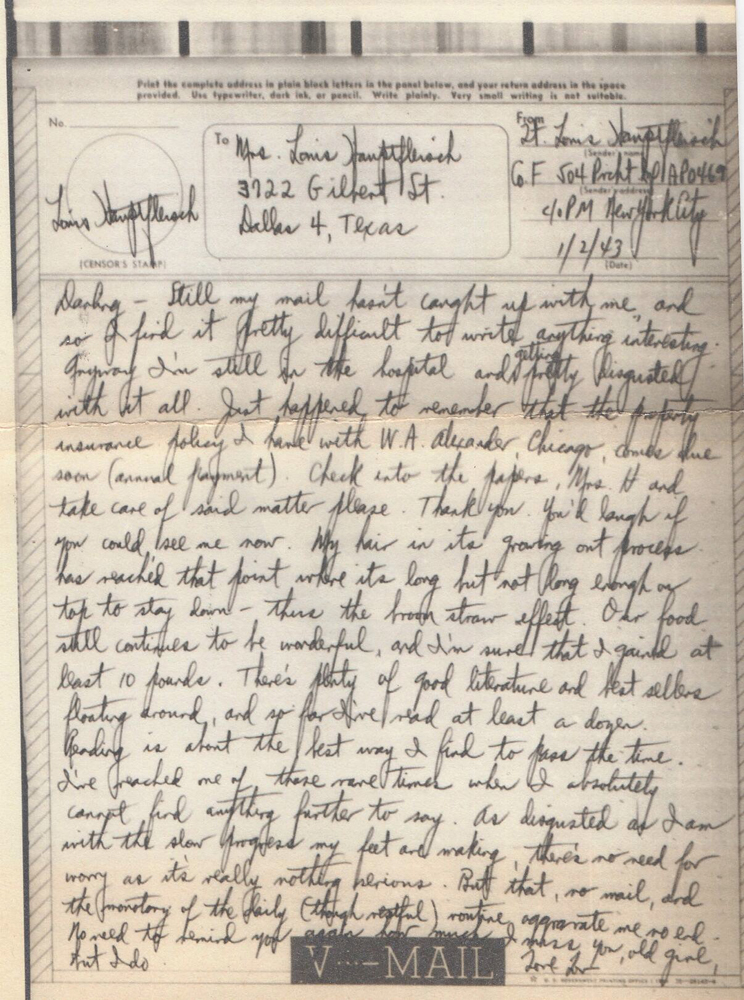 Print the complete address in plain block letters in the panel below, and your return address in the space
provided. Use typewriter, dark ink, or pencil. Write plainly. Very small writing is not suitable.
No.
To
Mrs. Louis Hauptfleisch
3722 Gilbert St.
Dallas 4, Texas
From
Lt. Louis Hauptfleisch
(Sender's name)
Co. F 504 Prcht APO 469
(Sender's address)
c/o PM New York City
1/2/43
(Date)
Louis Hauptfleisch
(CENSOR'S STAMP)
Darling – Still my mail hasn't caught up with me, and
so I find it pretty difficult to write anything interesting.
Anyway I'm still in the hospital and getting pretty disgusted
with it all. Just happened to remember that the property
insurance policy I have with W.A. Alexander, Chicago, comes due
soon (annual payment). Check into the papers, Mrs. H and
take care of said matter please. Thank you. You'd laugh if
you could see me now. My hair in its growing out process
has reached that point where its long but not long enough on
top to stay down – thus the broom straw effect. Our food
still continues to be wonderful, and I'm sure that I gained at
least 10 pounds. There's plenty of good literature and best sellers
floating around, and so far I've read at least a dozen.
Reading is about the best way I find to pass the time.
I've reached one of those rare times when I absolutely
cannot find anything further to say. As disgusted as I am
with the slow progress my feet are making, there's no need for
worry as it's really nothing serious. But that, no mail, and
the monotony of the daily (though restful) routine, aggravate me no end.
No need to remind you again how much I miss you, old girl,
but I do. Love Lou
V···-MAIL